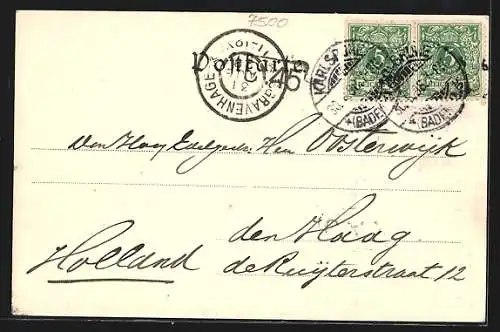 7500
Postkarte
'S GRAVENHAGE
KARLSRUHE
(BADEN)
(BADEN)
5 5
Den Hoog Edelgeb. Heer Oosterwijk
den Haag
Holland de Ruijterstraat 12